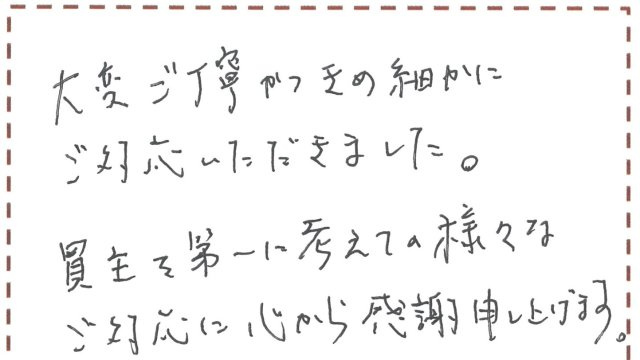 大変ご丁寧かつきめ細かに
ご対応いただきました。
買主を第一に考えての様々な
ご対応に心から感謝申し上げます。